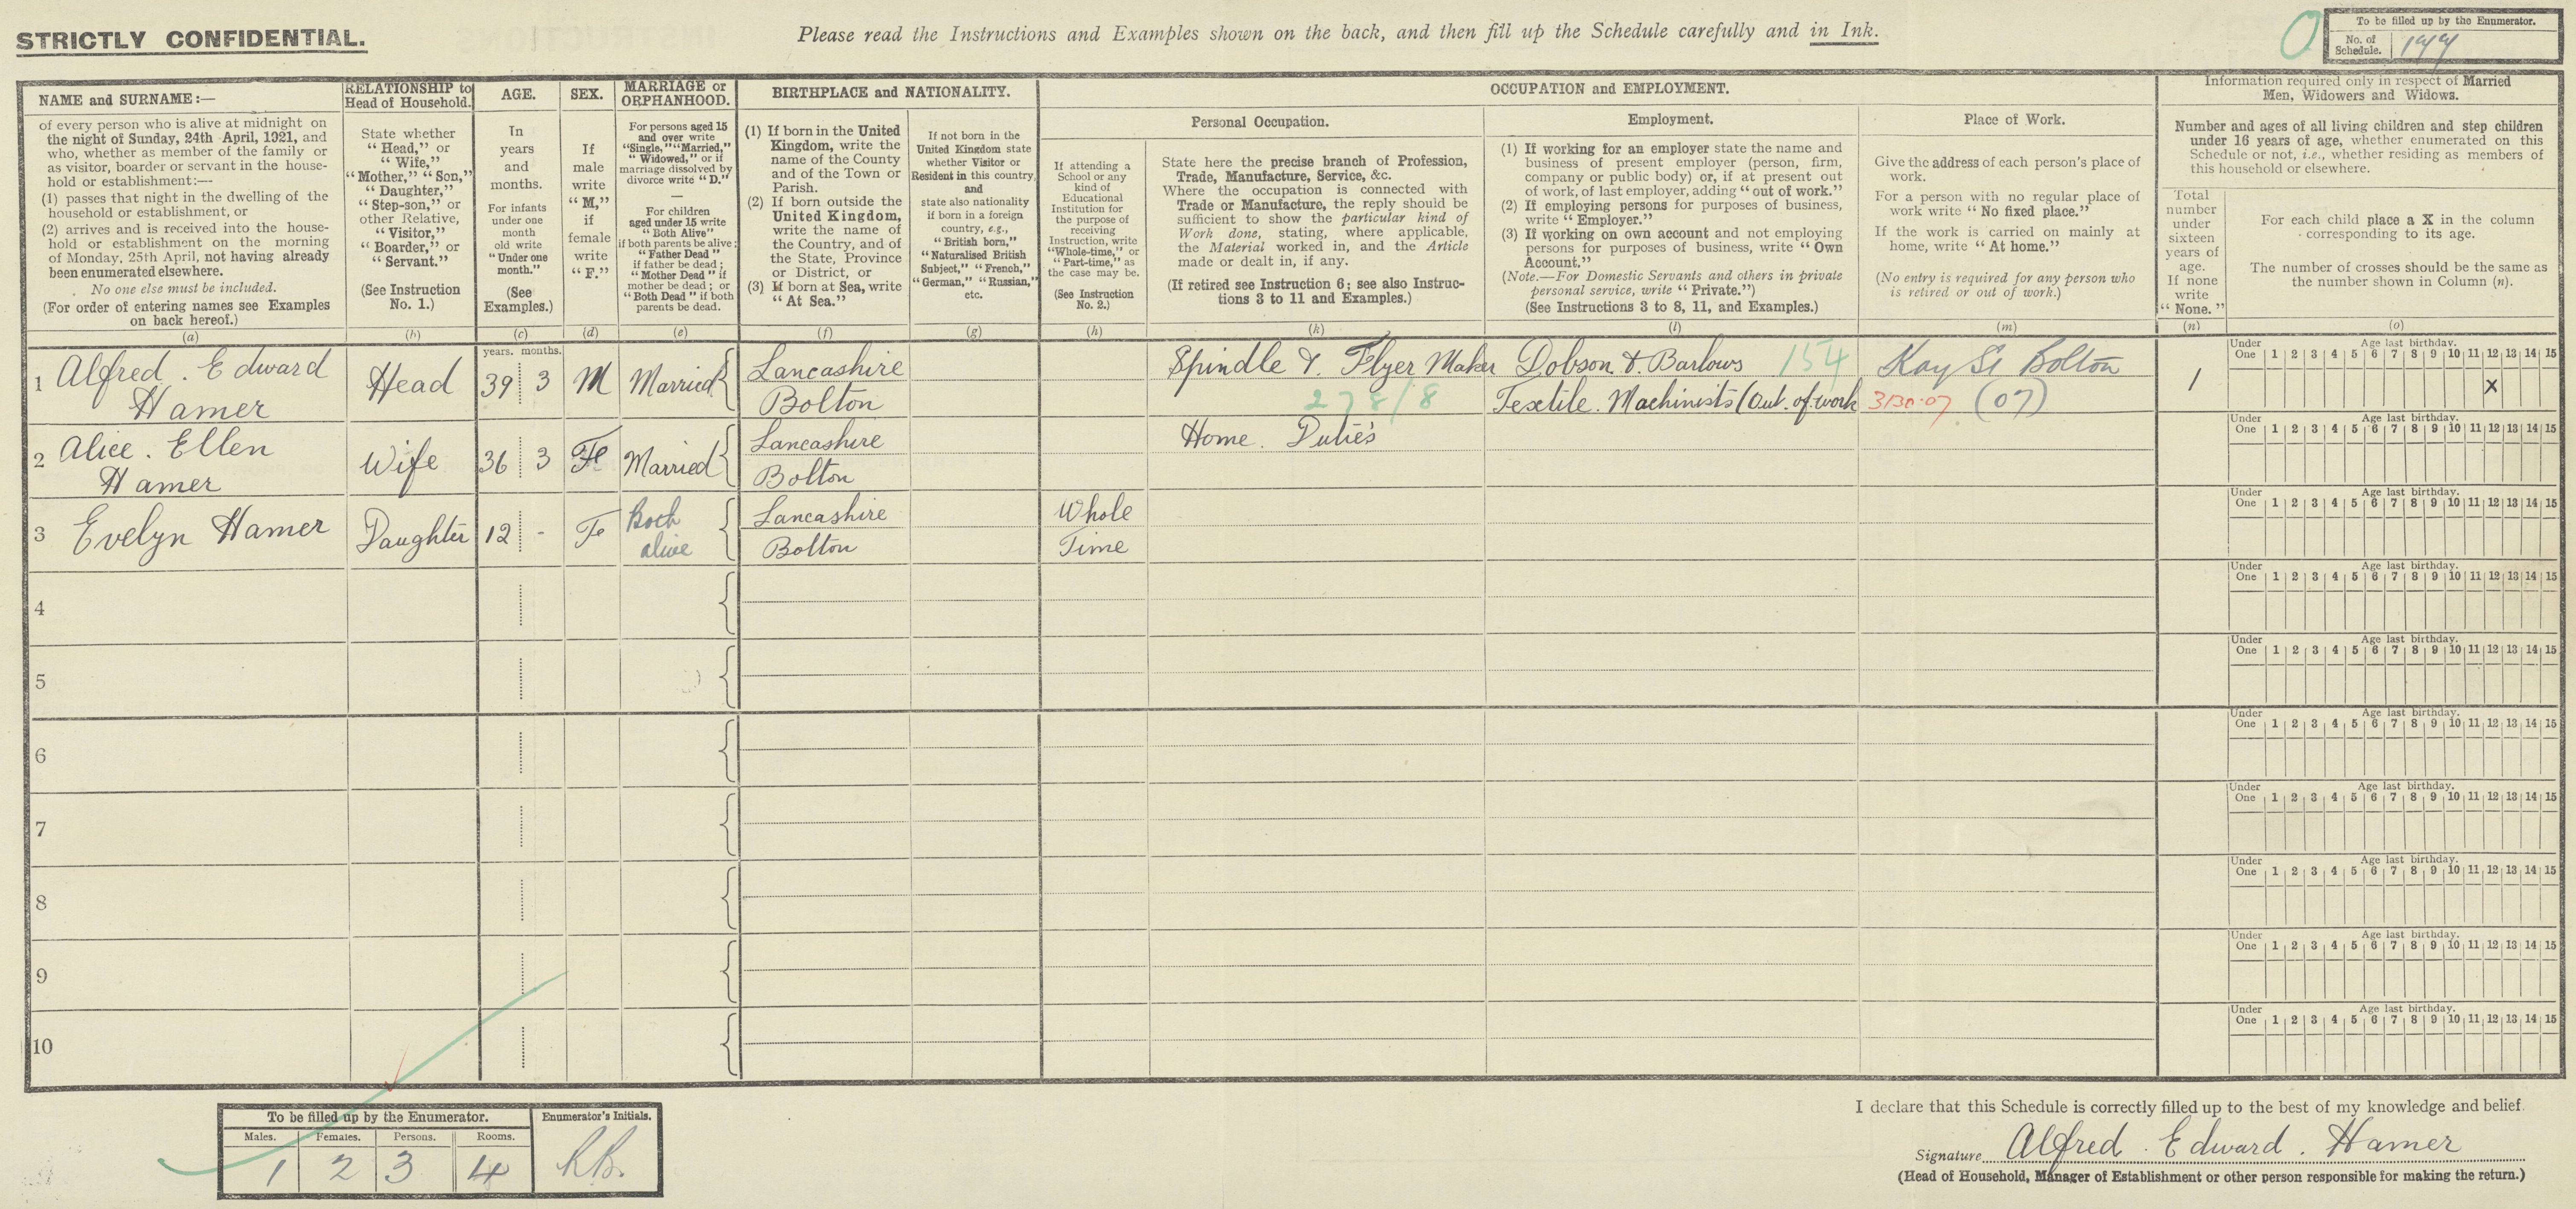 STRICTLY CONFIDENTIAL.
Please read the Instructions and Examples shown on the back, and then fill up the Schedule carefully and in Ink.
To be filled up by the Enumerator.
No. of Schedule. 144
NAME and SURNAME:—
of every person who is alive at midnight on
the night of Sunday, 24th April, 1921, and
who, whether as member of the family or
as visitor, boarder or servant in the house-
hold or establishment:—
(1) passes that night in the dwelling of the
household or establishment, or
(2) arrives and is received into the house-
hold or establishment on the morning
of Monday, 25th April, not having already
been enumerated elsewhere.
No one else must be included.
(For order of entering names see Examples
on back hereof.)
(a)
RELATIONSHIP to
Head of Household.
State whether
"Head," or
"Wife,"
"Mother," "Son,"
"Daughter,"
"Step-son," or
other Relative,
"Visitor,"
"Boarder," or
"Servant."
(See Instruction
No. 1.)
(b)
AGE.
In
years
and
months.
For infants
under one
month
old write
"Under one
month."
(See
Examples.)
(c)
SEX.
If
male
write
"M,"
if
female
write
"F."
(d)
MARRIAGE or
ORPHANHOOD.
For persons aged 15
and over write
"Single," "Married,"
"Widowed," or if
marriage dissolved by
divorce write "D."
—
For children
aged under 15 write
"Both Alive"
if both parents be alive;
"Father Dead"
if father be dead;
"Mother Dead" if
mother be dead; or
"Both Dead" if both
parents be dead.
(e)
BIRTHPLACE and NATIONALITY.
(1) If born in the United
Kingdom, write the
name of the County
and of the Town or
Parish.
(2) If born outside the
United Kingdom,
write the name of
the Country, and of
the State, Province
or District, or
(3) If born at Sea, write
"At Sea."
(f)
If not born in the
United Kingdom state
whether Visitor or
Resident in this country,
and
state also nationality
if born in a foreign
country, e.g.,
"British born,"
"Naturalised British
Subject," "French,"
"German," "Russian,"
etc.
(g)
OCCUPATION and EMPLOYMENT.
If attending a
School or any
kind of
Educational
Institution for
the purpose of
receiving
Instruction, write
"Whole-time," or
"Part-time," as
the case may be.
(See Instruction
No. 2.)
(h)
Personal Occupation.
State here the precise branch of Profession,
Trade, Manufacture, Service, &c.
Where the occupation is connected with
Trade or Manufacture, the reply should be
sufficient to show the particular kind of
Work done, stating, where applicable,
the Material worked in, and the Article
made or dealt in, if any.
(If retired see Instruction 6; see also Instruc-
tions 3 to 11 and Examples.)
(k)
Employment.
(1) If working for an employer state the name and
business of present employer (person, firm,
company or public body) or, if at present out
of work, of last employer, adding "out of work."
(2) If employing persons for purposes of business,
write "Employer."
(3) If working on own account and not employing
persons for purposes of business, write "Own
Account."
(Note.—For Domestic Servants and others in private
personal service, write "Private.")
(See Instructions 3 to 8, 11, and Examples.)
(l)
Place of Work.
Give the address of each person's place of
work.
For a person with no regular place of
work write "No fixed place."
If the work is carried on mainly at
home, write "At home."
(No entry is required for any person who
is retired or out of work.)
(m)
Information required only in respect of Married
Men, Widowers and Widows.
Number and ages of all living children and step children
under 16 years of age, whether enumerated on this
Schedule or not, i.e., whether residing as members of
this household or elsewhere.
Total
number
under
sixteen
years of
age.
If none
write
"None."
(n)
For each child place a X in the column
corresponding to its age.
The number of crosses should be the same as
the number shown in Column (n).
(o)
years. months.
1 Alfred. Edward Hamer Head 39 3 M Married Lancashire Bolton Spindle & Flyer Maker 278/8 Dobson & Barlows 154 Textile. Machinists (Out. of. work Kay St Bolton 3130.07 (07) 1
Under One 1 2 3 4 5 6 7 8 9 10 11 12 13 14 15
Age last birthday.
X
2 Alice. Ellen Hamer Wife 36 3 Fe Married Lancashire Bolton Home. Duties
Under One 1 2 3 4 5 6 7 8 9 10 11 12 13 14 15
Age last birthday.
3 Evelyn Hamer Daughter 12 - Fe Both alive Lancashire Bolton Whole Time
Under One 1 2 3 4 5 6 7 8 9 10 11 12 13 14 15
Age last birthday.
4
Under One 1 2 3 4 5 6 7 8 9 10 11 12 13 14 15
Age last birthday.
5
Under One 1 2 3 4 5 6 7 8 9 10 11 12 13 14 15
Age last birthday.
6
Under One 1 2 3 4 5 6 7 8 9 10 11 12 13 14 15
Age last birthday.
7
Under One 1 2 3 4 5 6 7 8 9 10 11 12 13 14 15
Age last birthday.
8
Under One 1 2 3 4 5 6 7 8 9 10 11 12 13 14 15
Age last birthday.
9
Under One 1 2 3 4 5 6 7 8 9 10 11 12 13 14 15
Age last birthday.
10
Under One 1 2 3 4 5 6 7 8 9 10 11 12 13 14 15
Age last birthday.
To be filled up by the Enumerator.
Males. Females. Persons. Rooms.
1 2 3 4
Enumerator's Initials.
I declare that this Schedule is correctly filled up to the best of my knowledge and belief.
Signature Alfred. Edward. Hamer
(Head of Household, Manager of Establishment or other person responsible for making the return.)